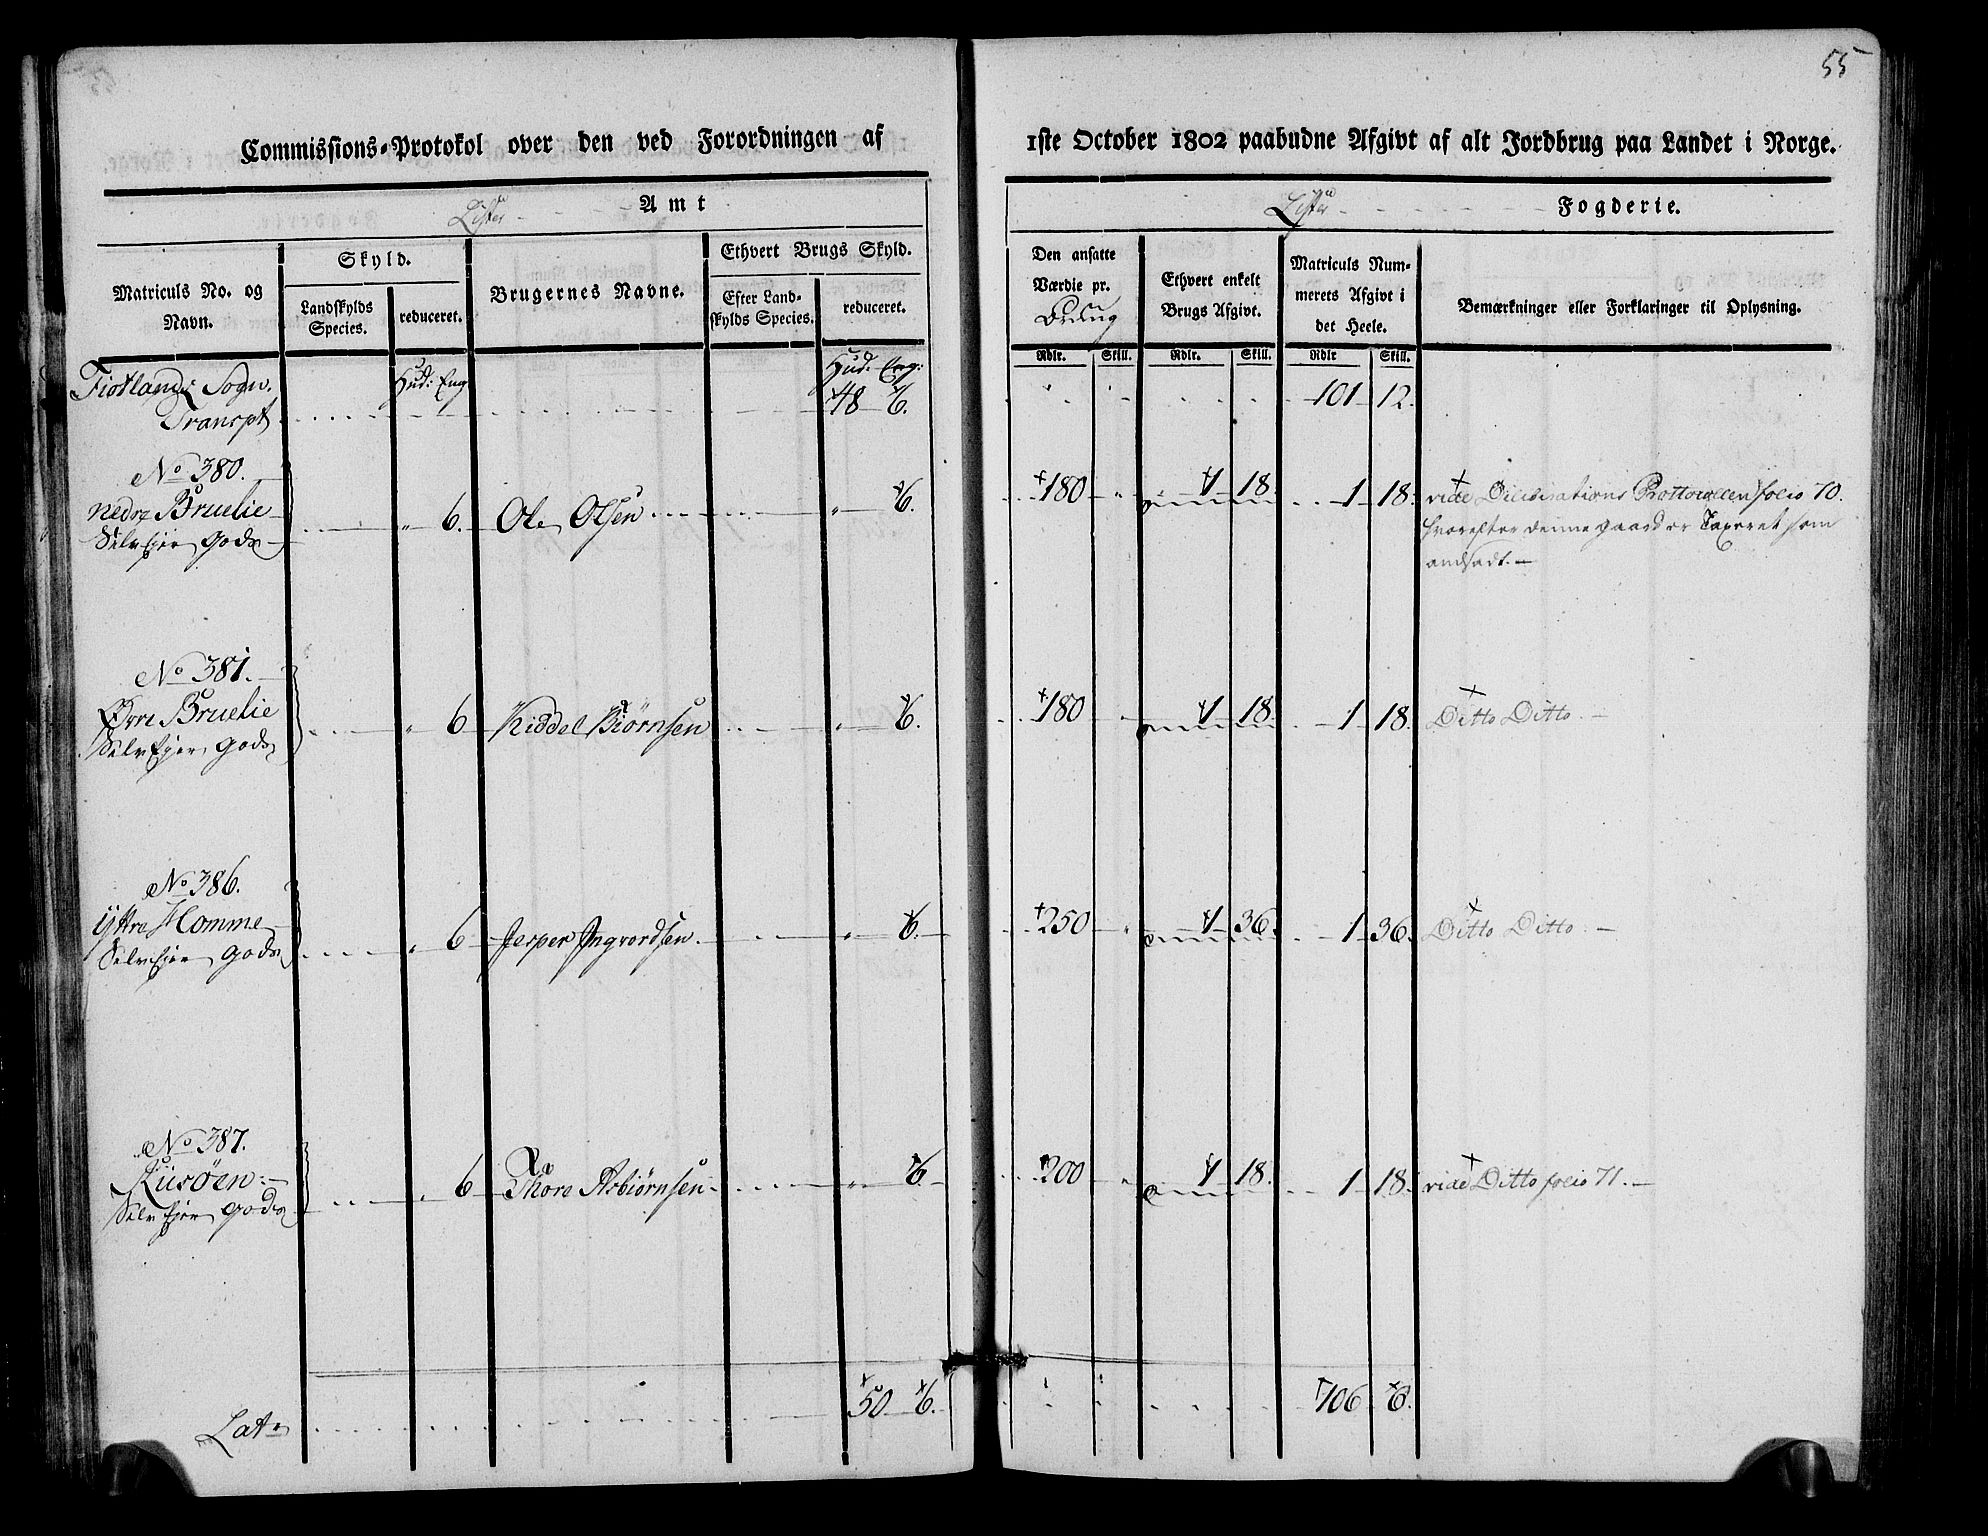 55
Commissions-Protokol over den ved Forordningen af 1ste October 1802 paabudne Afgivt af alt Jordbrug paa Landet i Norge.
Lister Amt
Lister Fogderie.
Matriculs No. og Navn.
Skyld.
Landskylds Species.
reduceret.
Brugernes Navne.
Ethvert Brugs Skyld.
Efter Landskylds Species.
reduceret.
Den ansatte Værdie pr. Brug
Ethvert enkelt Brugs Afgivt.
Matriculs Nummerets Afgivt i det Heele.
Bemærkninger eller Forklaringer til Oplysning.
Rdlr. Skill. Rdlr. Skill. Rdlr Skill.
Fiotlands Sogn. Hud: Eng Hud: Eng:
Transpt 48 6. 101 12.
No 380.
nedre Bruelie 6. Ole Olsen 6. 180 1 18. 1 18. vide Deliberations Protocollen folio 70.
Selv Ejer Gods hvorefter denne gaard er Taxeret som
andsadt.
No 381.
Øvre Bruelie 6 Kiddel Biørnsen 6. 180 1 18. 1 18. Ditto Ditto.
Selv Ejer Gods
No 386.
Yttre Homme 6 Jesper Ingvordsen. 6. 250 1 36. 1 36. Ditto Ditto.
Selv Ejer Gods
No 387.
Kusöen 6 Thore Asbiørnsen 6. 200 1 18. 1 18. vide Ditto folio 71.
Selv Ejer Gods
Lat. 50 6. 106 6.